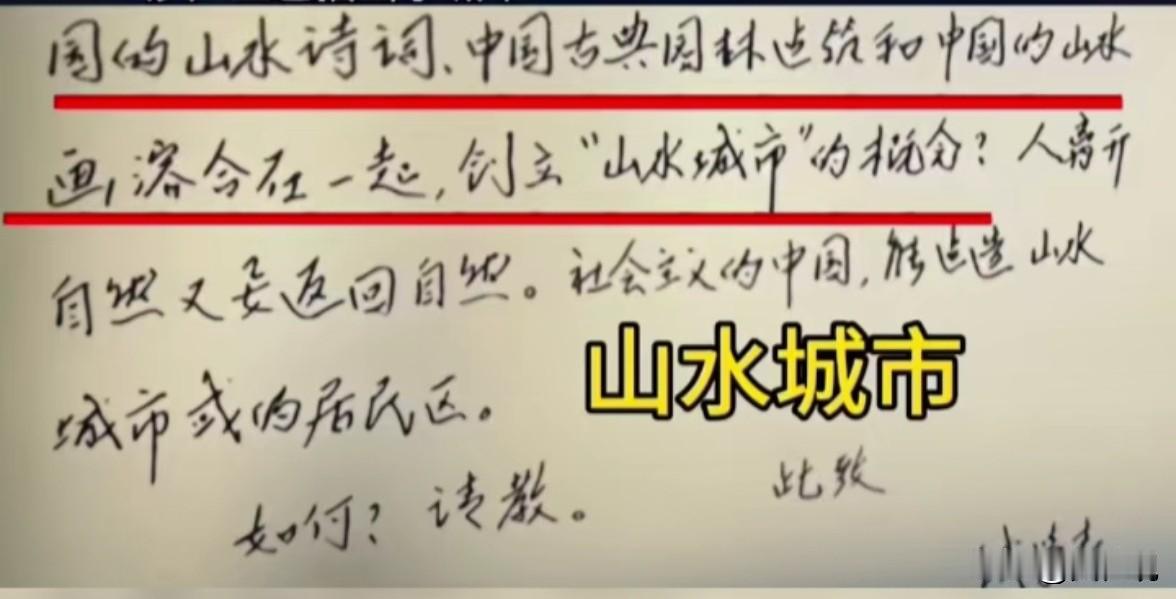 国的山水诗词、中国古典园林建筑和中国的山水
画，溶合在一起，创立“山水城市”的概念？人离开
自然又要返回自然。社会主义的中国，能建造山水
城市式的居民区。
山水城市
如何？请教。
此致